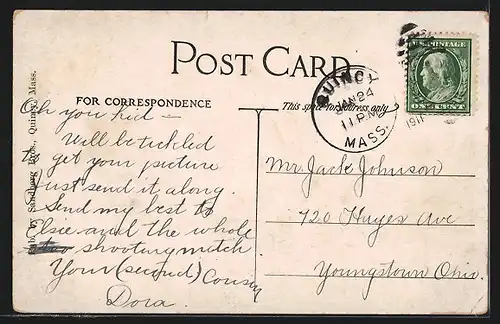 POST CARD
FOR CORRESPONDENCE
This space for address only
U.S. POSTAGE
ONE CENT
QUINCY
JAN 24
11 PM
MASS.
1911
Pub. by Sandberg Bros., Quincy, Mass.
Oh you kid —
Will be tickled
to get your picture
just send it along.
Send my best to
Elsie and the whole
shooting match
Your (second) Cousin
Dora.
Mr. Jack Johnson
720 Hayes Ave
Youngstown Ohio.